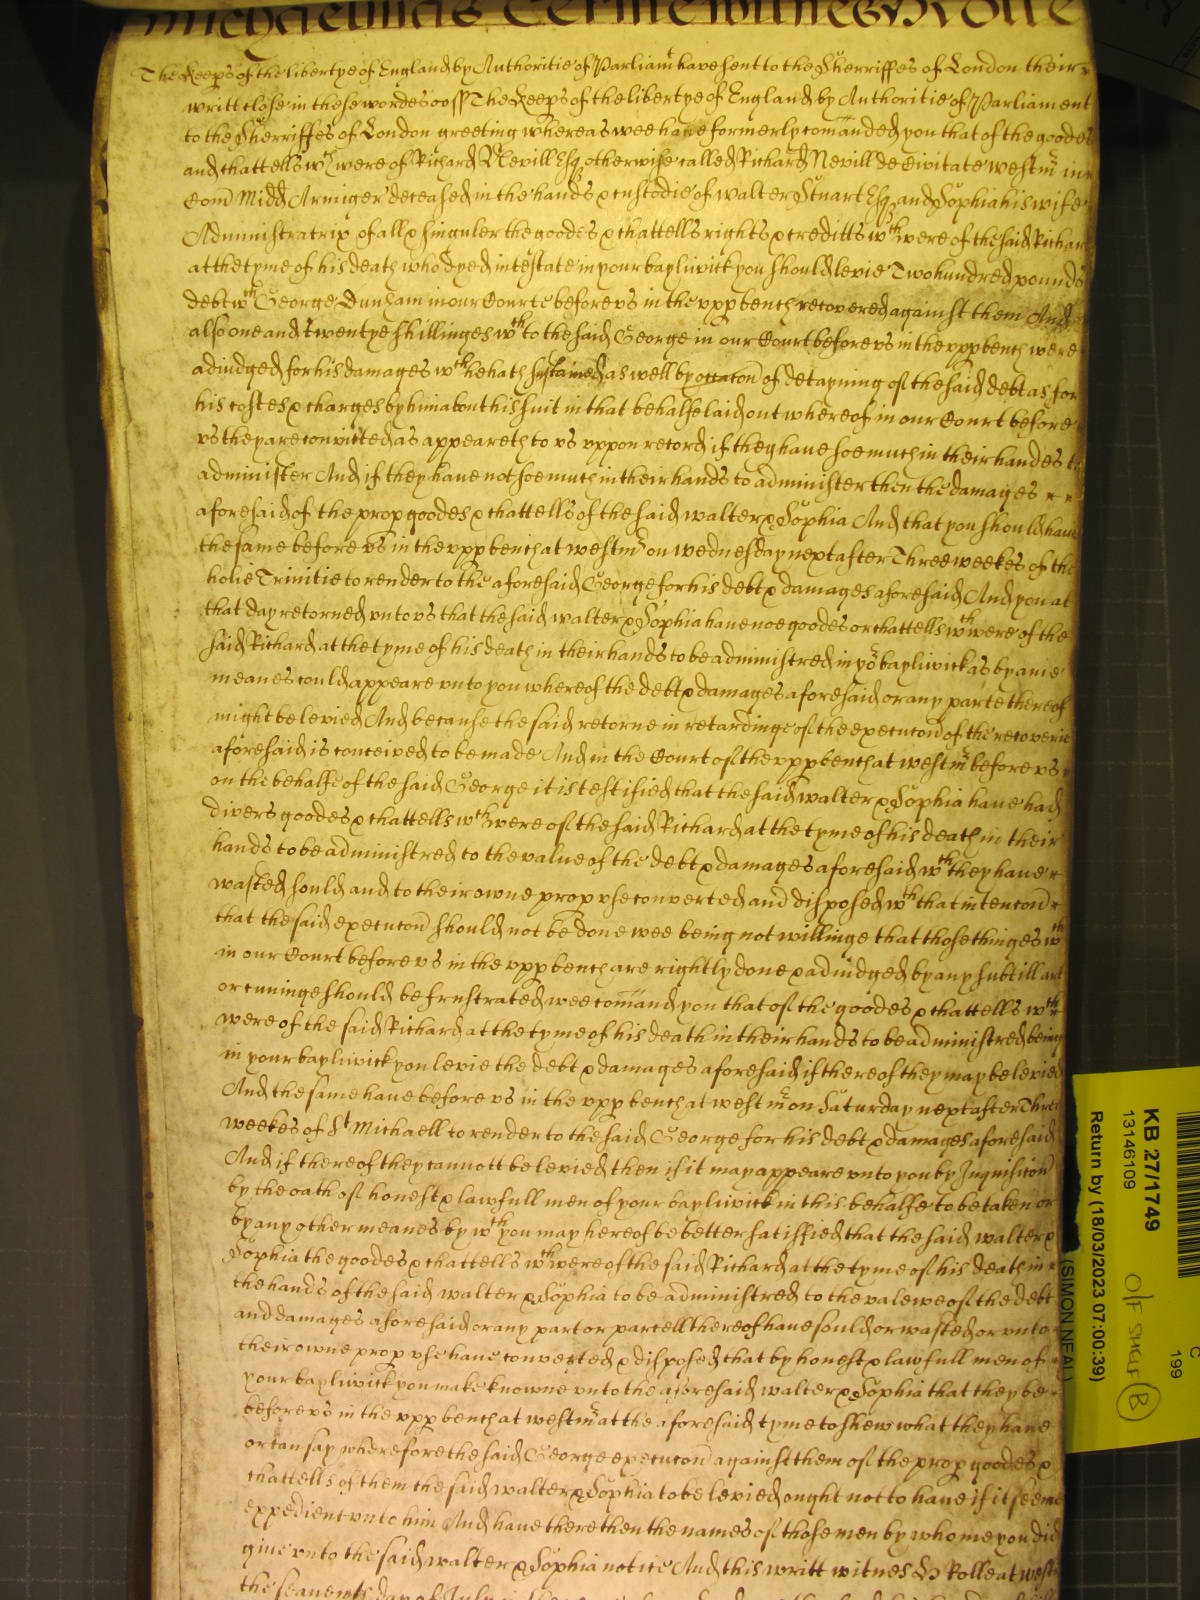 Michaelmas Terme witnes H Rolle
The Keeps of the libertye of England by Authoritie of Parliamt have sent to the Sherriffes of London their
writt close in these wordes ss The Keeps of the libertye of England by Authoritie of Parliament
to the Sherriffes of London greeting whereas wee have formerly comanded you that of the goodes
and chattells wch were of Richard Nevill Esq otherwise called Richard Nevill de Civitate westm in
Com Midd Armiger deceased in the hands & custodie of walter Stuart Esq and Sophia his wife
Administratrix of all & singuler the goodes & chattells rights & creditts wch were of the said Richard
at the tyme of his death who dyed intestate in your bayliwick you should levie Two hundred pounds
debt wch George Dunham in our Courte before vs in the vpp bench recovered against them And
also one and twentye shillinges wch to the said George in our Court before vs in the vpp bench were
adiudged for his damages wch he hath sustained as well by occacon of detayning of the said debt as for
his costes & charges by him about his suit in that behalfe laid out whereof in our Court before
vs they are convicted as appeareth to vs vppon record if they have soe much in their handes to
administer And if they have not soe much in their hands to administer then the damages
aforesaid of the prop goodes & chattells of the said walter & Sophia And that you should have
the same before vs in the vpp bench at westm on wednesday next after Three weekes of the
holie Trinitie to render to the aforesaid George for his debt & damages aforesaid And you at
that day retorned vnto vs that the said walter & Sophia have noe goodes or chattells wch were of the
said Richard at the tyme of his death in their hands to be administred in yor bayliwick as by anie
meanes could appeare vnto you whereof the debt & damages aforesaid or any parte thereof
might be levied And because the said retorne in retardinge of the execucon of the recoverie
aforesaid is conceived to be made And in the Court of the vpp bench at westm before vs
on the behalfe of the said George it is testified that the said walter & Sophia have had
divers goodes & chattells wch were of the said Richard at the tyme of his death in their
hands to be administred to the value of the debt & damages aforesaid wch they have
wasted sould and to their owne prop vse converted and disposed wth that intencon
that the said execucon should not be done wee being not willinge that those thinges wch
in our Court before vs in the vpp bench are rightly done & adiudged by any subtill art
or cuninge should be frustrated wee comand you that of the goodes & chattells wch
were of the said Richard at the tyme of his death in their hands to be administred being
in your bayliwick you levie the debt & damages aforesaid if thereof they may be levied
And the same have before vs in the vpp bench at westm on Saturday next after Three
weekes of St Michaell to render to the said George for his debt & damages aforesaid
And if thereof they cannott be levied then if it may appeare vnto you by Inquisicon
by the oath of honest & lawfull men of your bayliwick in this behalfe to be taken or
by any other meanes by wch you may hereof be better satisfied that the said walter &
Sophia the goodes & chattells wch were of the said Richard at the tyme of his death in
the hands of the said walter & Sophia to be administred to the valewe of the debt
and damages aforesaid or any part or parcell thereof have sould or wasted or vnto
their owne prop vse have converted & disposed that by honest & lawfull men of
your bayliwick you make knowne vnto the aforesaid walter & Sophia that they be
before vs in the vpp bench at westm at the aforesaid tyme to shew what they have
or can say wherefore the said George execucon against them of the prop goodes &
chattells of them the said walter & Sophia to be levied ought not to have if it seeme
expedient vnto him And have there then the names of those men by whome you did
give vnto the said walter & Sophia notice And this writt witnes H Rolle at westm
the seaventh day of July in the
KB 27/1749
13146109
Return by (18/03/2023 07:00:39)
(SIMON NEAL)
O/F SHELF B
C
199